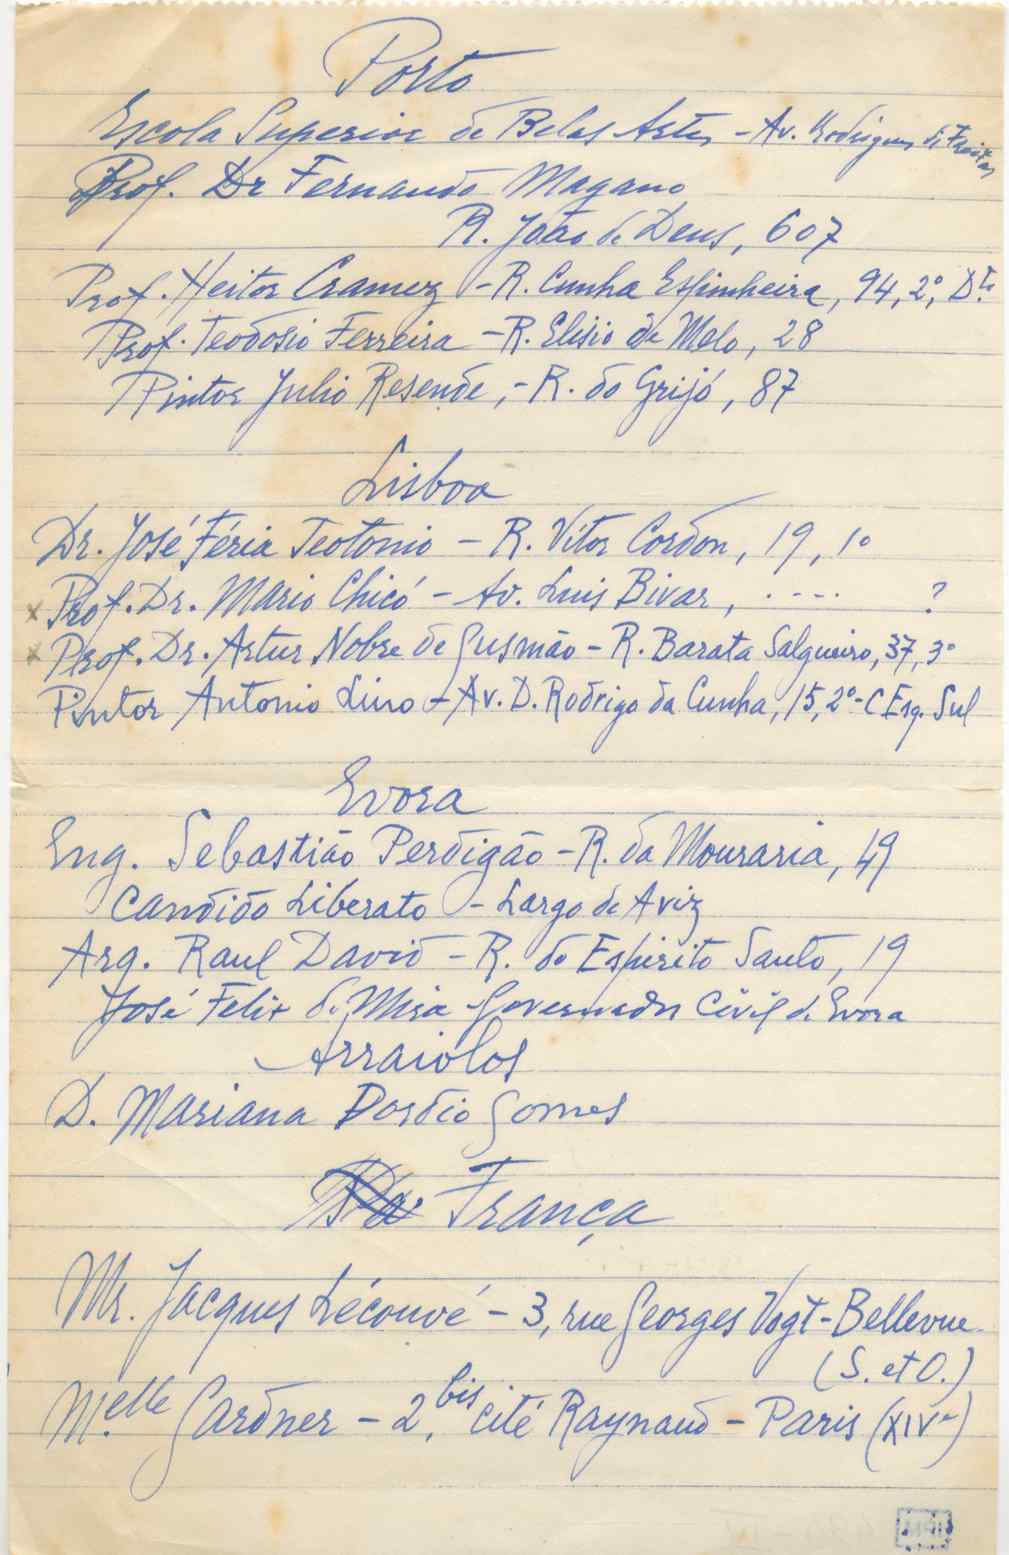 Porto
Escola Superior de Belas Artes - Av. Rodrigues de Freitas
Prof. Dr Fernando Magano
R. João de Deus, 607
Prof. Heitor Cramez - R. Cunha Espinheira, 94, 2º, Dto
Prof. Teodosio Ferreira - R. Elisio de Melo, 28
Pintor Julio Resende, - R. do Grijó, 87
Lisboa
Dr. José Féria Teotonio - R. Vítor Cordon, 19, 1º
x Prof. Dr. Mario Chicó - Av. Luis Bivar, .... ?
x Prof. Dr. Artur Nobre de Gusmão - R. Barata Salgueiro, 37, 3º
Pintor Antonio Lino - Av. D. Rodrigo da Cunha, 15, 2º - C Esq. Sul
Evora
Eng. Sebastião Perdigão - R. da Mouraria, 49
Candido Liberato - Largo de Aviz
Arq. Raul David - R. do Espirito Santo, 19
José Felix de Mira - Governador Civil de Evora
Arraiolos
D. Mariana Dordio Gomes
França
Mr. Jacques Lécouvé - 3, rue Georges Vogt - Bellevue
(S. et O.)
Melle Gardner - 2, bis cité Raynaud - Paris (XIVe)